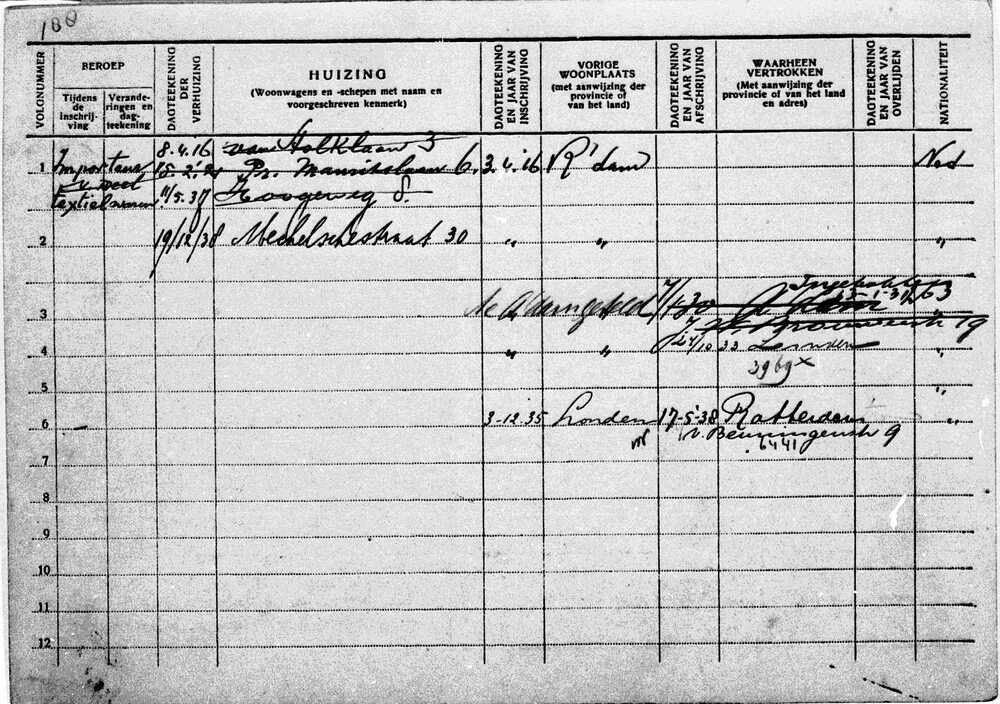 100
VOLGNUMMER
BEROEP
Tijdens de inschrijving
Veranderingen en dagteekening
DAGTEEKENING DER VERHUIZING
HUIZING
(Woonwagens en -schepen met naam en voorgeschreven kenmerk)
DAGTEEKENING EN JAAR VAN INSCHRIJVING
VORIGE WOONPLAATS
(met aanwijzing der provincie of van het land)
DAGTEEKENING EN JAAR VAN AFSCHRIJVING
WAARHEEN VERTROKKEN
(Met aanwijzing der provincie of van het land en adres)
DAGTEEKENING EN JAAR VAN OVERLIJDEN
NATIONALITEIT
8.4.16 van Stolklaan 3
1 Importeur 15.2.21 Pr. Mauritslaan 6. 3.4.16 R'dam Ned
v. wol
textielwaren 11/5.37 Hoogeweg 8.
2 19/12/38 Mechelschestraat 30 " " "
3 "
Brouwerstr 19
4 " " 24/10 33 Londen "
3969 x
5 "
6 3-12.35 Londen 17-5-38 Rotterdam "
v. Beuningenstr 9
6441
7
8
9
10
11
12